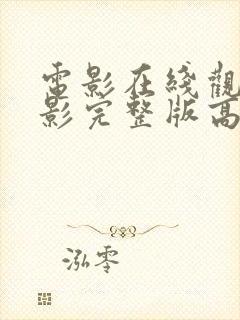 電影在綫觀
影完整版高
泓零